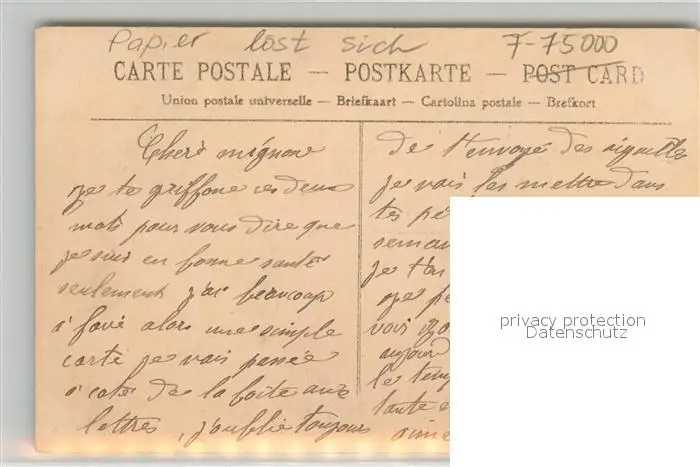 Papier löst sich 7-75000
CARTE POSTALE — POSTKARTE — POST CARD
Union postale universelle — Briefkaart — Cartolina postale — Brefkort
Cheré mignone
je te griffone ces deux
mots pour vous dire que
je suis en bonne santé
seulement j'ai beaucoup
à faire alors une simple
carte je vais passée
a coté de la boite aux
lettres, j'oublie toujours
de t'envoyé des aiguilles
je vais les mettre dans
tes
semai
je t'
je
vois
aujourd
le temp
tante
aime
privacy protection
Datenschutz